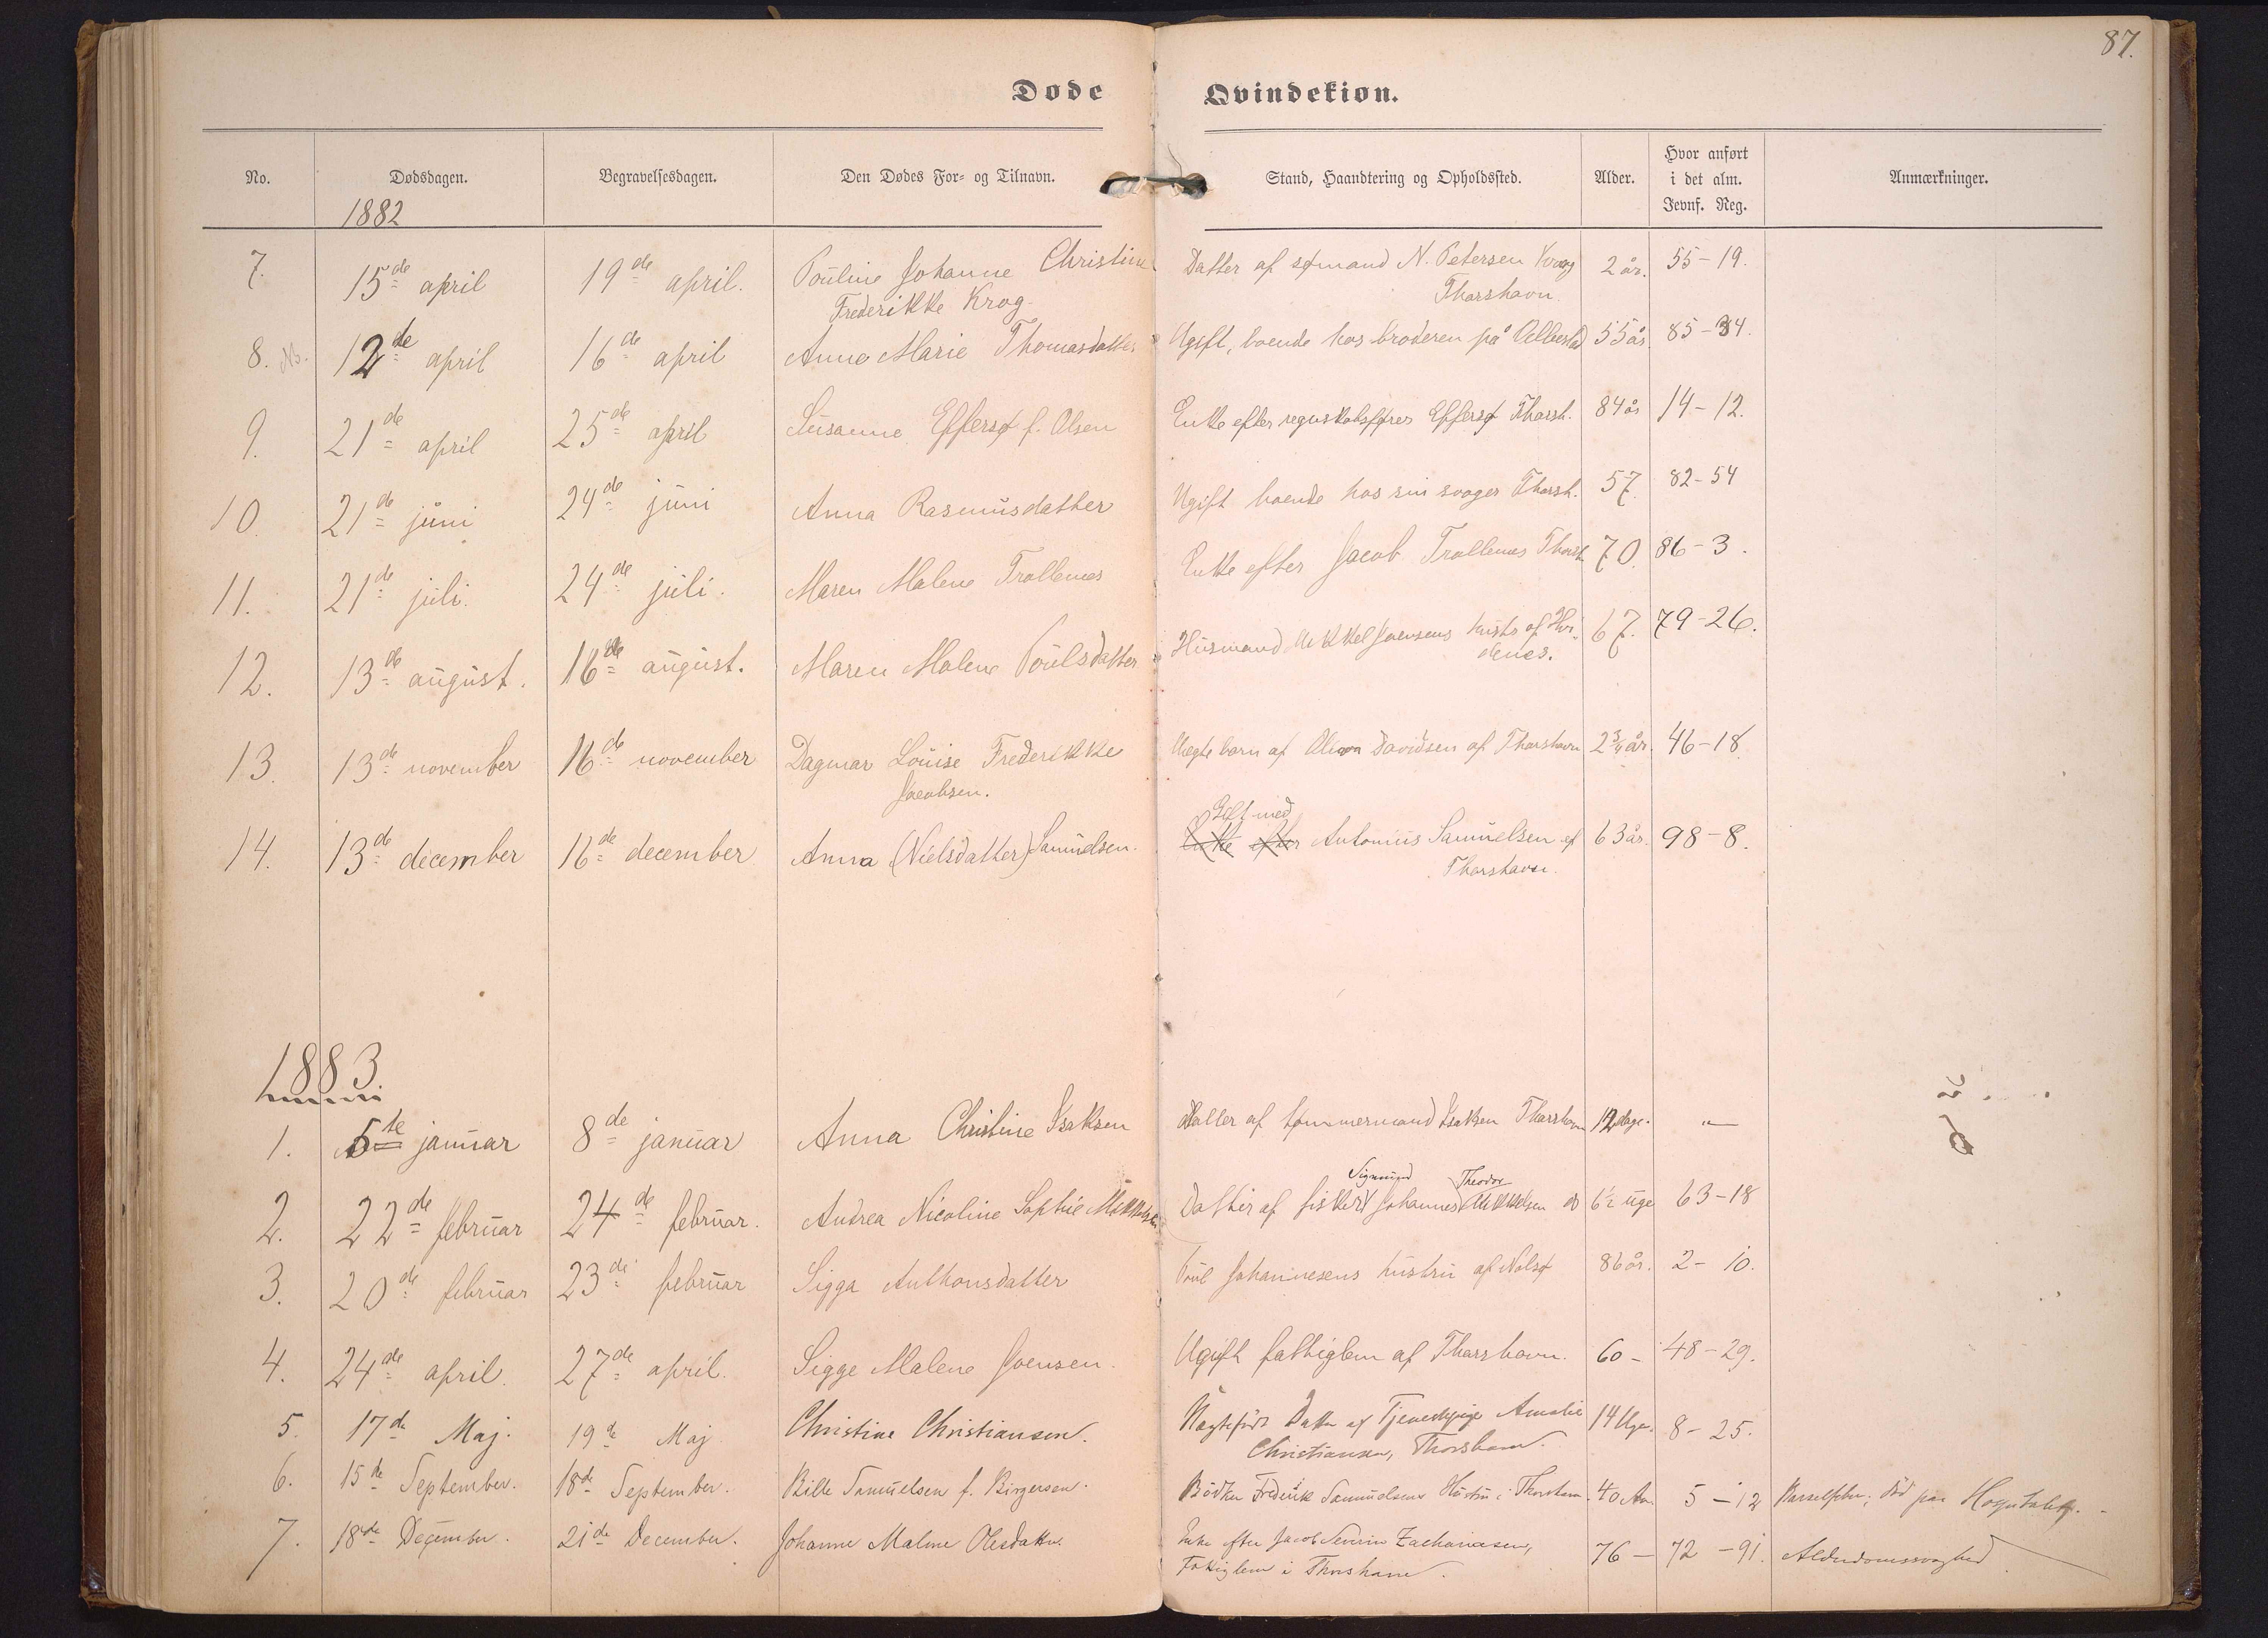 87.
Døde Qvindekion.
No. Dødsdagen. Begravelsesdagen. Den Dødes For- og Tilnavn. Stand, Haandtering og Opholdssted. Alder. Hvor anført i det alm. Jevnf. Reg. Anmærkninger.
1882
7. 15de april 19de april. Pouline Johanne Christine Datter af sømand N. Petersen Krog 2 år. 55-19.
Frederikke Krog Thorshavn.
8. NB. 12de april 16de april Anne Marie Thomasdatter Ugift, boende hos broderen på 55 år. 85-34.
9. 21de april 25de april Susanne Effersø f. Olsen Enke efter regnskabsfører Effersø Thorsh. 84 år 14-12.
10. 21de juni 24de juni Anna Rasmusdatter Ugift boende hos sin svoger Thorsh. 57. 82-54
11. 21de juli. 24de juli. Maren Malene Trøllenes Enke efter Jacob Trøllenes Thorsh 70. 86-3.
12. 13de august. 16de august. Maren Malene Poulsdatter Husmand Mikkel Joensens hustr af Hvi- 67. 79-26.
denes.
13. 13de november 16de november Dagmar Louise Frederikke Uegte barn af Davidsen af Thorshavn 2 3/4 år. 46-18.
Jacobsen.
Gift med
14. 13de december 16de december Anna (Nielsdatter) Samuelsen. Enke efter Antonius Samuelsen af 63 år. 98-8.
Thorshavn.
1883.
1. 5te januar 8de januar Anna Christine Isaksen Datter af tømmermand Isaksen Thorshavn 12 dage. "
Sigmund Theodor
2. 22de februar 24de februar. Andrea Nicoline Sophie Mikkelsen Datter af fisker Johannes Mikkelsen 6½ uge 63-18
3. 20de februar 23de februar Sigga Anthonsdatter Poul Johannesens hustru af Nolsø 86 år. 2-10.
4. 24de april. 27de april. Sigge Malene Joensen. Ugift fattiglem af Thorshavn. 60- 48-29.
5. 17de Maj. 19de Maj Christine Christiansen. Uægtefødt Datter af Tjenestepige Amalie 14 Uger. 8-25.
Christiansen, Thorshavn.
6. 15de September. 18de September. Bille Samuelsen f. Birgersen. Bödker Frederik Samuelsens Hustru i Thorshavn. 40 Aar 5-12 Barselfeber; död paa Hospitalet.
7. 18de December. 21de December. Johanne Malene Olesdatter. Enke efter Jacob Severin Zachariasen, 76- 72-91. Alderdomssvaghed
Fattiglem i Thorshavn.